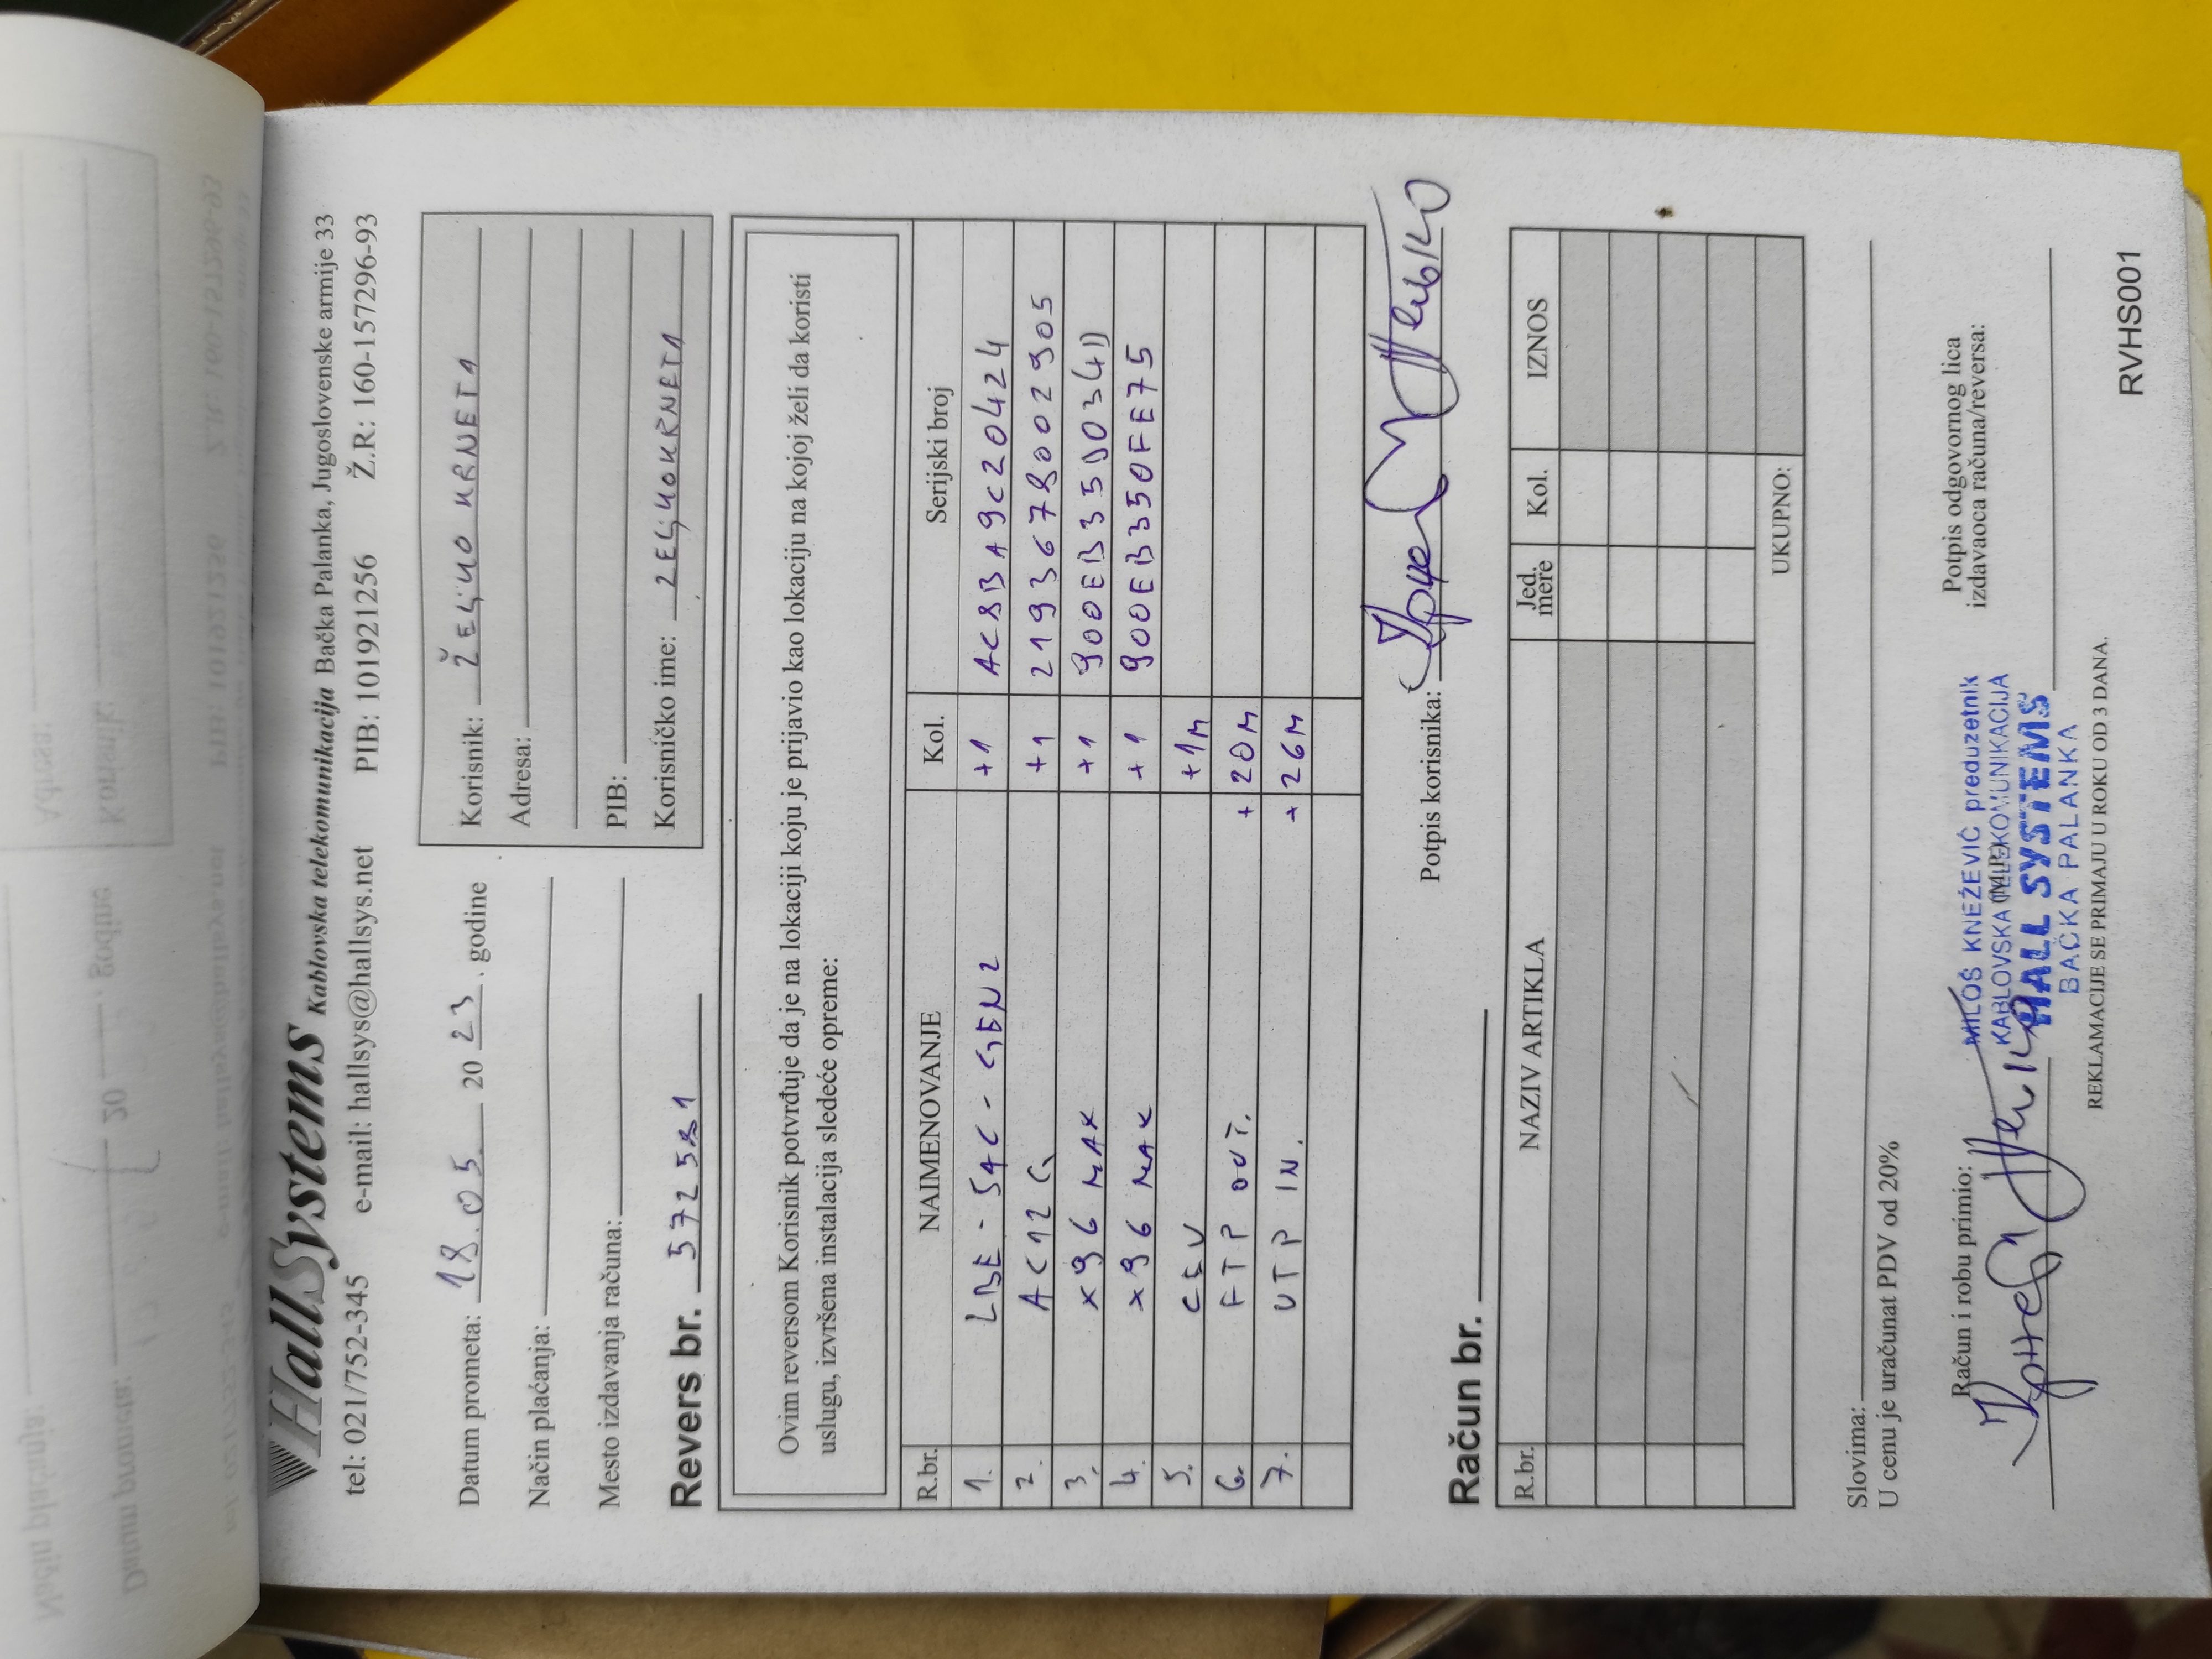 HallSystems Kablovska telekomunikacija Bačka Palanka, Jugoslovenske armije 33
tel: 021/752-345 e-mail: hallsys@hallsys.net PIB: 101921256 Ž.R: 160-157296-93
Datum prometa: 18.05. 20 23. godine
Način plaćanja:
Mesto izdavanja računa:
Korisnik: ŽELJKO KRNETA
Adresa:
PIB:
Korisničko ime: ZELJKOKRNETA
Revers br. 572581
Ovim reversom Korisnik potvrđuje da je na lokaciji koju je prijavio kao lokaciju na kojoj želi da koristi
uslugu, izvršena instalacija sledeće opreme:
R.br. NAIMENOVANJE Kol. Serijski broj
1. LBE-5AC-GEN2 +1 AC8BA9C20424
2. AC12G +1 2193678002905
3. X96 MAX +1 900EB35D034D
4. X96 MAX +1 900EB350FE75
5. +1M
6. FTP OUT. +20M
7. UTP IN. +26M
Potpis korisnika:
Račun br.
R.br. NAZIV ARTIKLA Jed. mere Kol. IZNOS
UKUPNO:
Slovima:
U cenu je uračunat PDV od 20%
Račun i robu primio:
(M.P.)
MILOŠ KNEŽEVIĆ preduzetnik
KABLOVSKA TELEKOMUNIKACIJA
HALL SYSTEMS
BAČKA PALANKA
Potpis odgovornog lica
izdavaoca računa/reversa:
REKLAMACIJE SE PRIMAJU U ROKU OD 3 DANA.
RVHS001